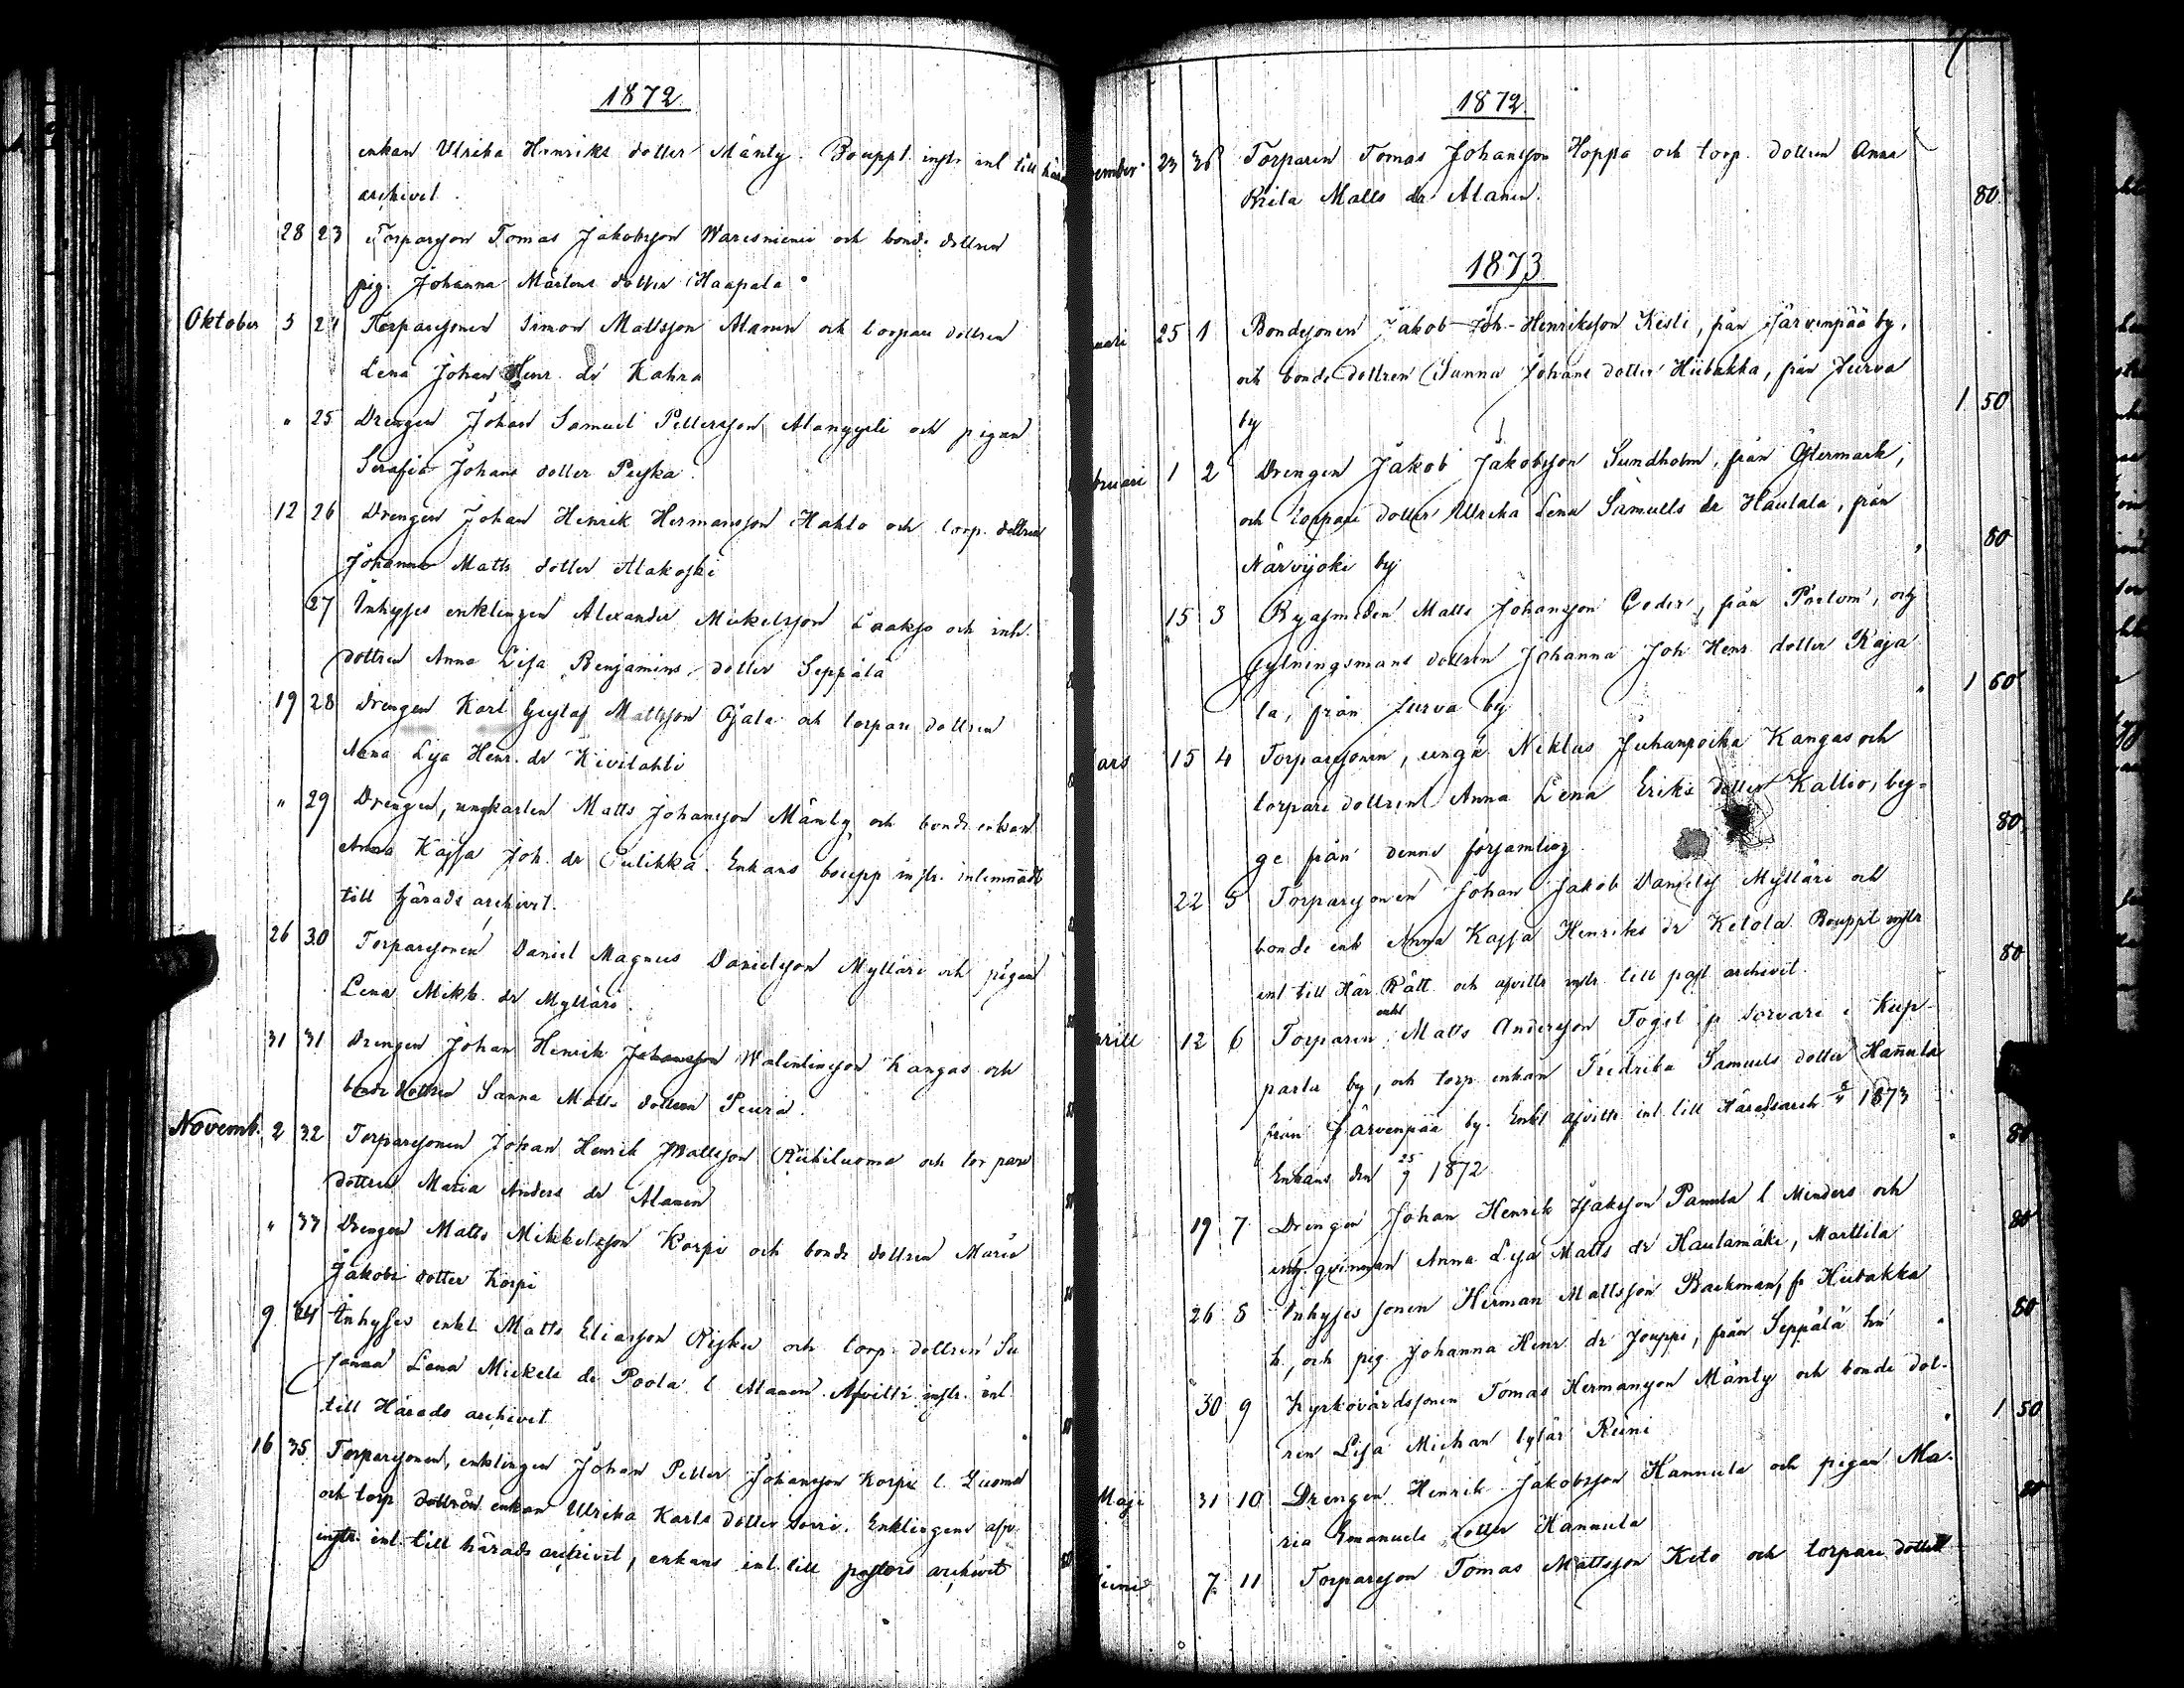 1872
enkan Ulrika Henriks dotter Mänty. Bouppt. instr. inl till
archivet.
28 23 Torparson Tomas Jakobsson Waresniemi och bonde dottren
pig. Johanna Mårtens dotter Haapala
Oktober 5 24 Torparsonen Simon Mattsson Alanen och torpare dottren
Lena Johan Henr. dr Kahra
" 25 Drengen Johan Samuel Pettersson och pigan
Serafia Johans dotter
12 26 Drengen Johan Henrik Hermansson Hahto och torp. dottren
Johanna Matts dotter Alakoski
27 Inhyses enklingen Alexander Mickelsson Laakso och inh.
dottren Anna Lisa Benjamins dotter Seppälä
19 28 Drengen Karl Gustaf Mattsson Ojala och torpare dottren
Anna Lisa Henr. dr Kivilahti
" 29 Drengen, ungkarlen Matts Johansson Mänty och bonde enkan
Anna Kajsa Joh. dr Enkans boupp instr. inlemnadt
till härads archivet.
26 30 Torparsonen Daniel Magnus Danielsson Mylläri och pigan
Lena Mikk. dr Mylläri.
31 31 Drengen Johan Henrik Johansson Walentinsson Kangas och
bonde dottren Sanna Matts dottren Peura.
Novemb. 2 32 Torparsonen Johan Henrik Mattsson Riihiluoma och torpare
dottren Maria Anders dr Alanen
" 33 Drengen Matts Mikkelsson Korpi och bonde dottren Maria
Jakobs dotter Korpi
9 34 Inhyses enkl. Matts Eliasson och torp. dottren Su
sanna Lena Mickels dr Poola l. Alanen. Afvittr. instr. inl.
till Härads archivet
16 35 Torparsonen, enklingen Johan Petter Johansson Korpi l. Luoma
och torp. dottren enkan Ulrika Karls dotter Sorri. Enklingens afv.
instr. inl. till härads archivet, enkans inl. till pastors archivet
1872
ember 23 36 Torparen Tomas Johansson Hoppa och torp. dottren Anna
Brita Matts dr Alanen. 80
1873
uari 25 1 Bondesonen Jakob Joh. Henriksson Kesti, från Järvenpää by,
och bonde dottren Sanna Johans dotter Hiibakka, från Jurva
by 1 50
bruari 1 2 Drengen Jakob Jakobsson Sundholm, från Östermark,
och torpare dotter Ulrika Lena Samuels dr Hautala, från
Närvijoki by 80
15 3 Bysmeden Matts Johansson från Pörtom, och
fylningsmans dottren Johanna Joh Henr dotter Raja
la, från Jurva by 1 60
ars 15 4 Torparsonen, unga Niklas Juhanpoika Kangas och
torpare dottren Anna Lena Eriks dotter Kallio, beg-
ge från denna församling 80
22 5 Torparsonen Johan Jakob Daniels Mylläri och
bonde enk Anna Kajsa Henriks dr Ketola. Bouppt instr
inl till Här. Rätt. och afvittr instr. till past archivet. 80
rill 12 6 Torparen enkl Matts Andersson Togel fr Sorvari i Kup-
parla by, och torp. enkan Fredrika Samuels dotter Hannula
från Järvenpää by. Enkl afvittr inl till Häradsarch 1873
Enkans den 25/7 1872 80
19 7 Drengen Johan Henrik Isaksson Pannula l Minders och
inh. qvinnan Anna Lisa Matts dr Hautamäki, Marttila 80
26 8 Inhyses sonen Herman Mattsson Backman, fr Hiibakka
h., och pig. Johanna Henr dr Jouppi, från Seppälä hn 80
30 9 Kyrkovärdsonen Tomas Hermansson Mänty och bonde dot-
ren Lisa Michan tytär Reini 1 50
Maji 31 10 Drengen Henrik Jakobsson Hannula och pigan Ma-
ria Emanuels dotter Hannula 80
uni 7 11 Torparson Tomas Mattsson Keto och torpare dotter